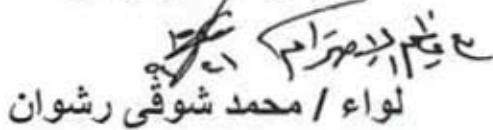 مع فائق الاحترام
لواء / محمد شوقى رشوان